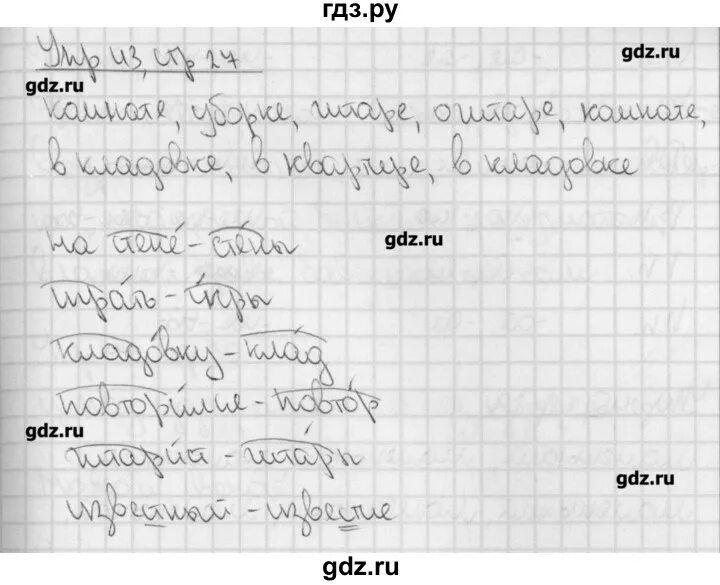 гдз.ру
Упр 43, стр 27
gdz.ru
gdz.ru
комнате, уборке, гитаре, о гитаре, комнате,
в кладовке, в квартире, в кладовке
на стене́ - сте́ны
gdz.ru
игра́ть - и́гры
кладо́вку - кла́д
повтори́ли - повто́р
gdz.ru
gdz.ru
- гита́ры
известный - известие
gdz.ru